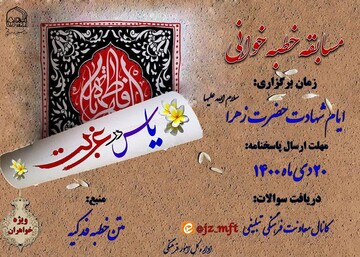 مسابقه خطبه خوانی
زمان برگزاری:
ایام شهادت حضرت زهرا سلام الله علیها
مهلت ارسال پاسخنامه:
۲۰ دی ماه ۱۴۰۰
دریافت سوالات:
کانال معاونت فرهنگی تبلیغی
@ojz.mft
منبع:
متن خطبه فدکیه
ویژه
خواهران
یاس در غربت